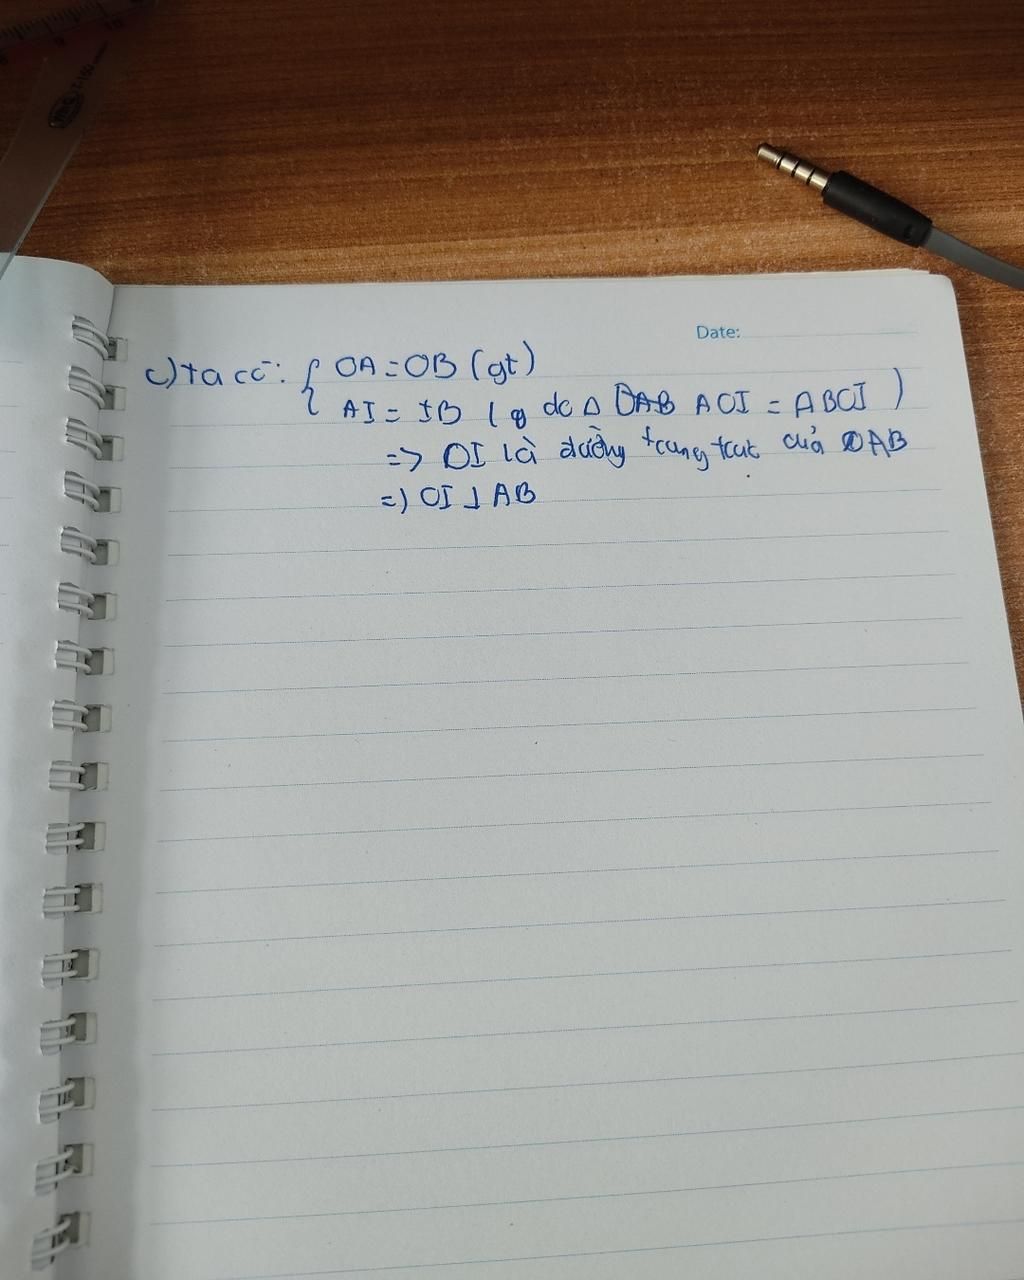 Date:
c) ta có: { OA = OB (gt)
AI = IB ( do Δ OAB AOI = ΔBOI )
=> OI là đường trung trực của OAB
=) OI ⊥ AB